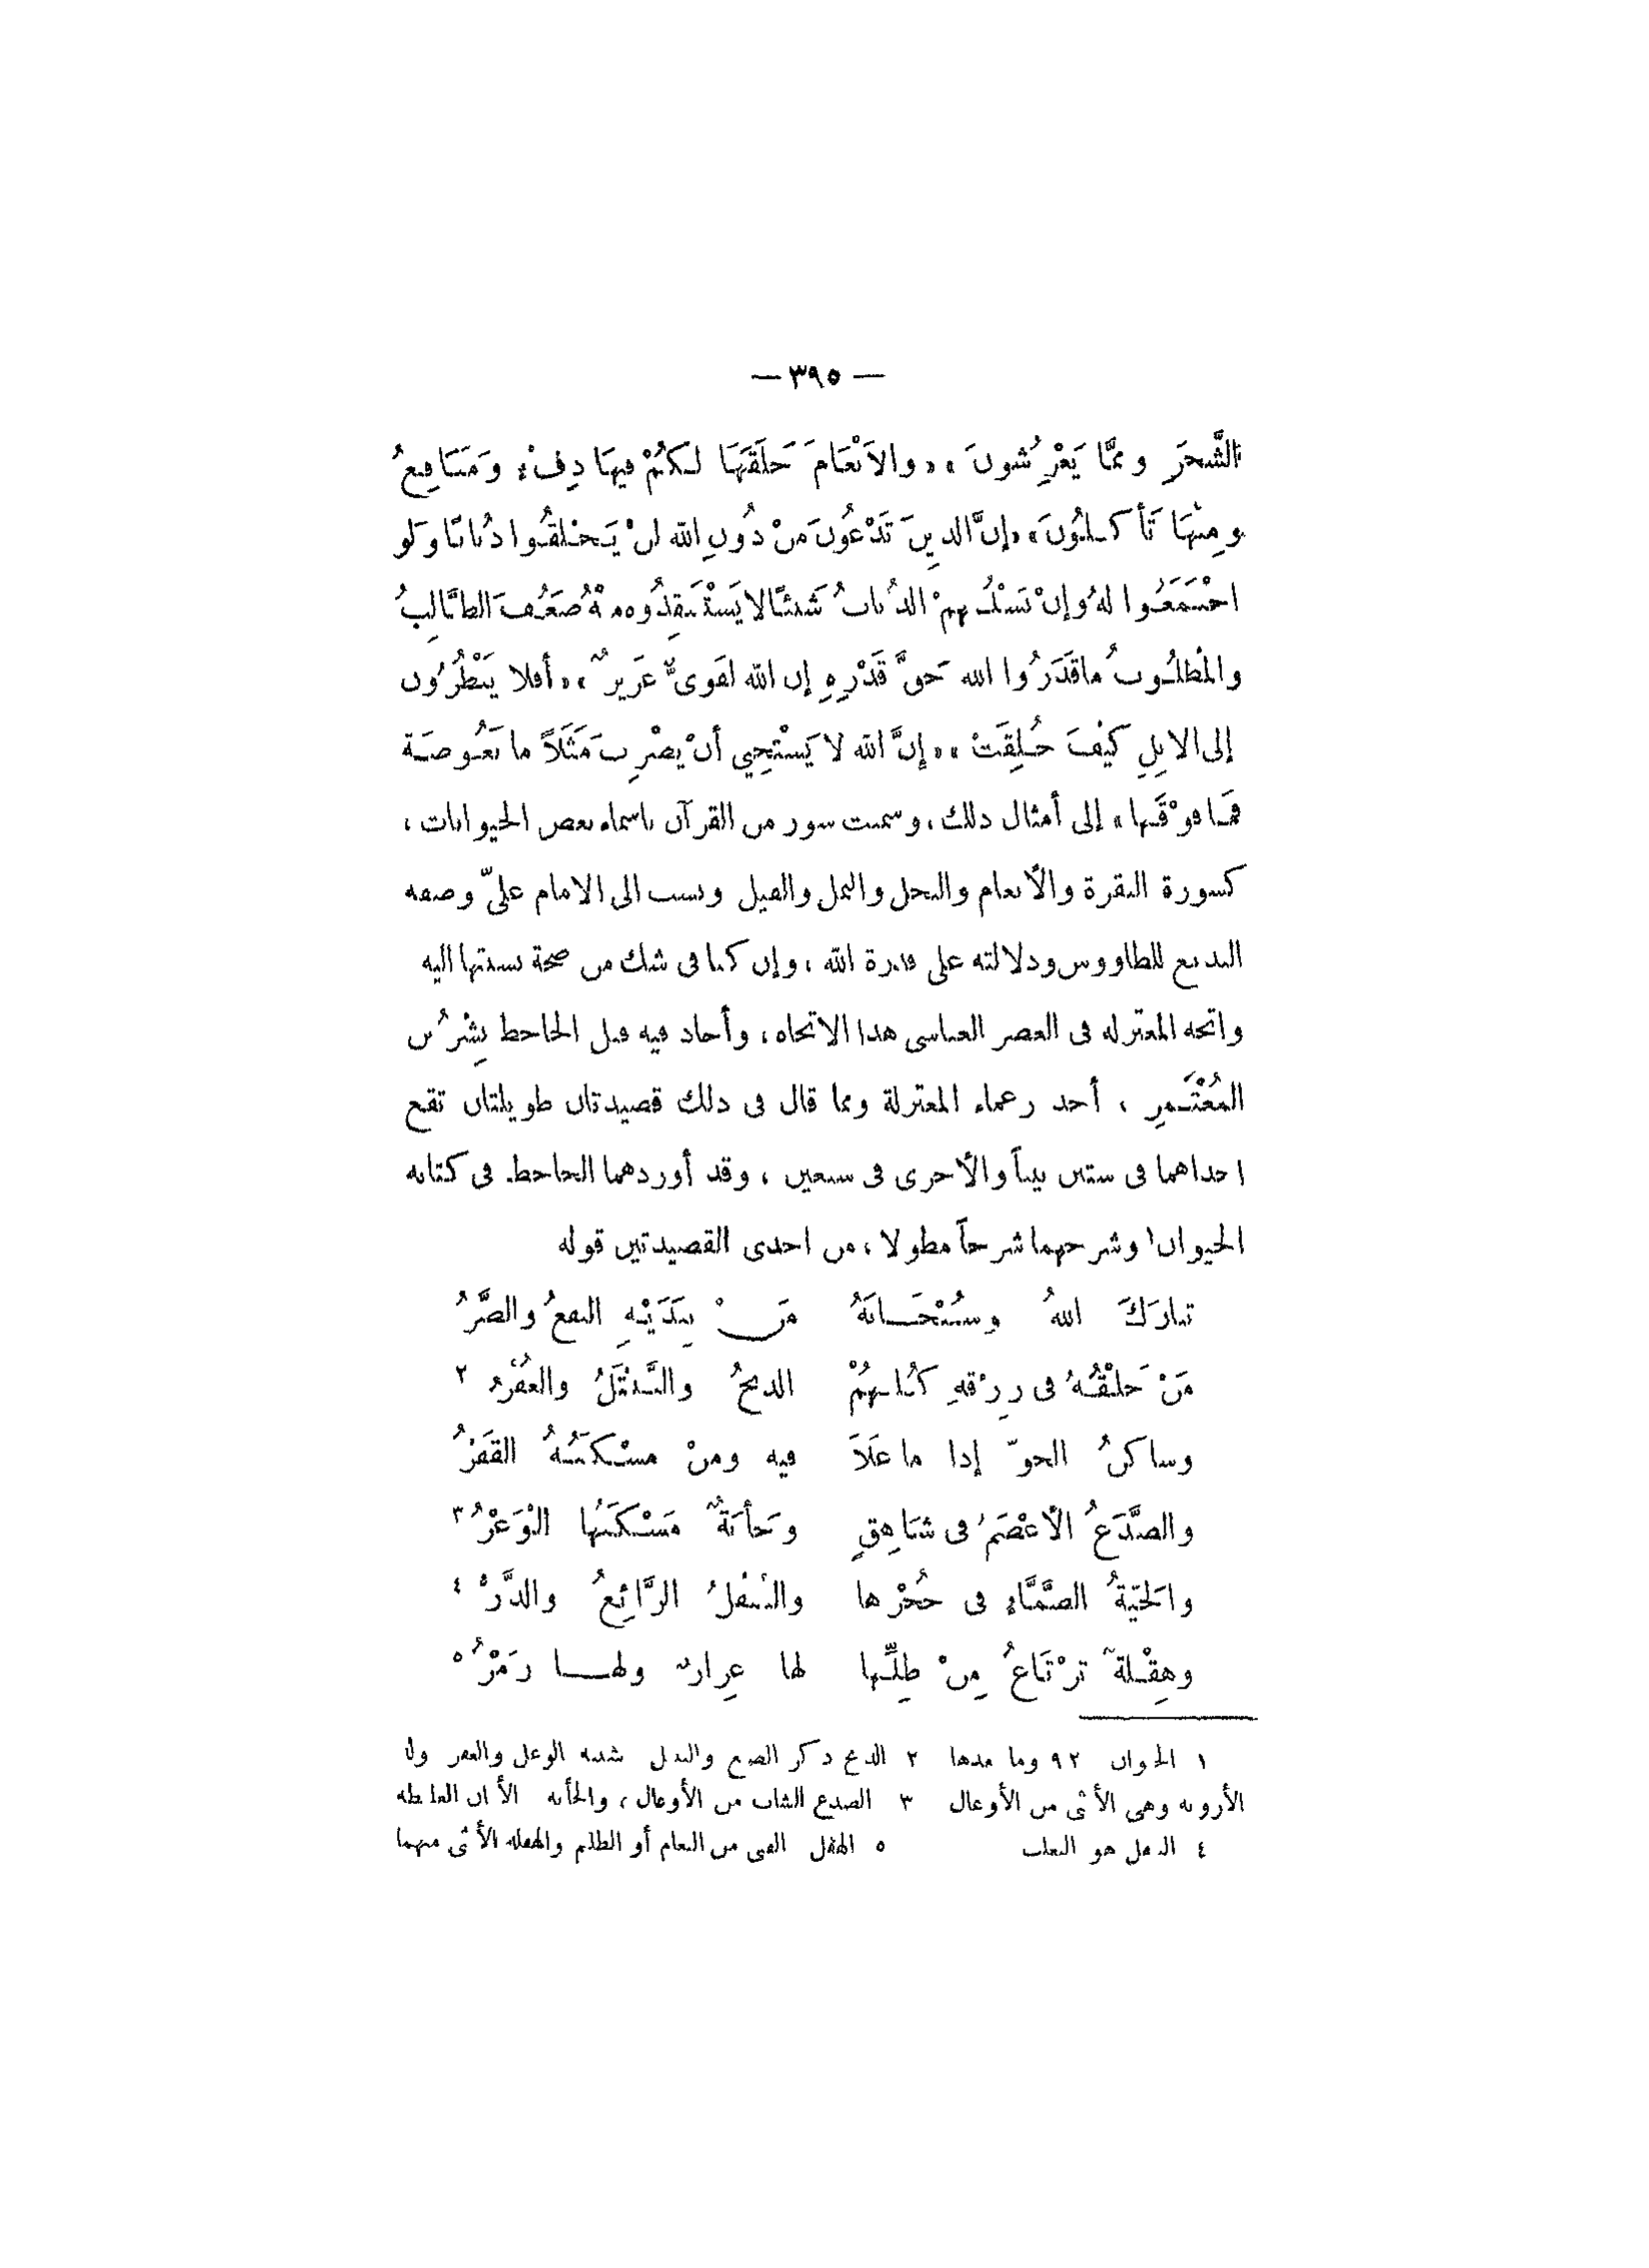 — ٣٩٥ —
الشَّجَرِ وممَّا يَعْرِشُونَ » ، « والاَنْعَامَ خَلَقَهَا لـكمُْ فِيهَا دِفْءٌ وَمَنَافِعُ
ومِنْهَا تَأكـلُونَ » « إنَّ الذينَ تَدْعُونَ مِنْ دُونِ الله لنْ يَخْلقُوا ذُبابًا وَلو
اجْتَمَعُوا لهُ وإنْ يَسْلُبْهمْ الذُّبابُ شَيْئًا لا يَسْتَنْقِذُوه مِنْهُ ضَعُفَ الطَّالِبُ
والمْطلُوبُ ما قَدَرُوا الله حَقَّ قَدْرِهِ إن الله لقَوىٌّ عَزيزٌ » ، « أفلا يَنْظُرُون
إلى الابِلِ كَيْفَ خُلِقَتْ » ، « إنَّ الله لا يَسْتَحِيي أنْ يضْرِبَ مَثَلاً ما بَعُوضَة
فمَا فوْقَها » إلى أمثال ذلك ، وسميت سور من القرآن باسماء بعض الحيوانات ،
كسورة البقرة والأنعام والنحل والنمل والفيل ونسب الى الامام علىّ وصفه
البديع للطاووس ودلالته على قدرة الله ، وإن كنا فى شك من صحة نسبتها اليه
واتجه المعتزله فى العصر العباسى هذا الاتجاه ، وأجاد فيه قبل الجاحظ بِشْرُ بن
المُعْتَمِرِ ، أحد زعماء المعتزلة ومما قال فى ذلك قصيدتان طويلتان تقع
احداهما فى ستين بيتاً والأخرى فى سبعين ، وقد أوردهما الجاحظ فى كتابه
الحيوان١ وشرحهما شرحاً مطولا ، من احدى القصيدتين قوله
تبارَكَ اللهُ وسُبْحَـانَهُ مَنْ بِيَدَيْهِ النفعُ والضَّرُّ
مَنْ خَلْقُهُ فى رِزْقهِ كلُّـهُمْ الذيخُ والثَّيْتَلُ والغُفْرُ ٢
وساكنُ الجوّ إذا ما عَلاَ فيه ومنْ مسْكَنُهُ القَفْرُ
والصَّدَعُ الأعْصَمُ فى شَاهِقٍ وجَأبَةٌ مَسْكَنُها الْوَعْرُ ٣
والحَيّةُ الصَّمَّاء فى جُحْرها والتتفلُ الرَّائِغُ والذَّرُّ ٤
وهِقْلةٌ ترْتَاعُ مِنْ ظِلِّها لها عِرارٌ ولهـا زمْرُ ٥
١ الحيوان ٩٢ وما بعدها ٢ الذيخ ذكر الضبع والثيتل شبيه الوعل والغفر ولد
الأروية وهى الأنثى من الأوعال ٣ الصدع الشاب من الأوعال ، والجأبة الأتان الغليظة
٤ التتفل هو الثعلب ٥ الهقل الفتى من النعام أو الظليم والهقلة الأنثى منهما